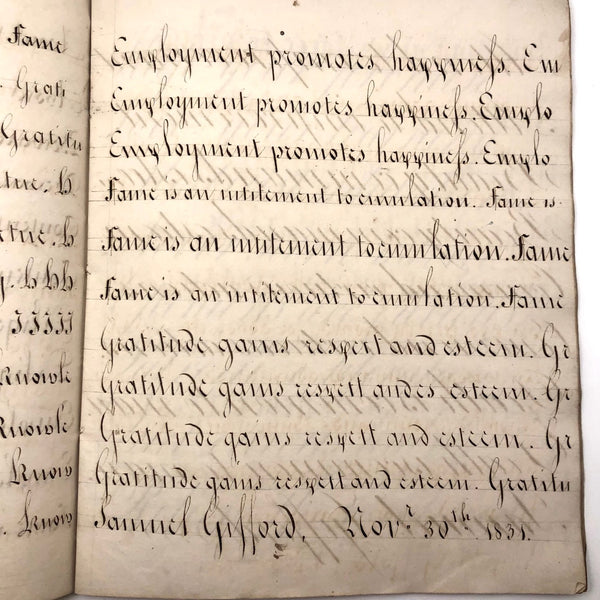 Fame
Grati
Gratitu
tue. H
tue. h
y. h hh
JJJJJ
Knowle
Knowle
Know
. Know
Employment promotes happiness. Em
Employment promotes happiness. Emplo
Employment promotes happiness. Emplo
Fame is an intitement to emulation. Fame is
Fame is an intitement to emulation. Fame
Fame is an intitement to emulation. Fame
Gratitude gains respect and esteem. Gr
Gratitude gains respect andes esteem. Gr
Gratitude gains respect and esteem. Gr
Gratitude gains respect and esteem. Gratitu
Samuel Gifford, Novr 30th 1831.